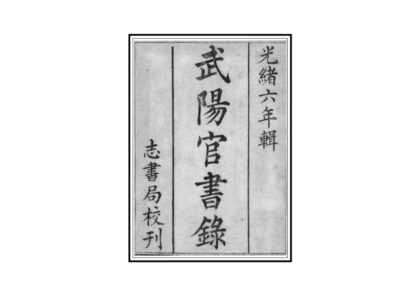 光緒六年輯
武陽官書錄
志書局校刋